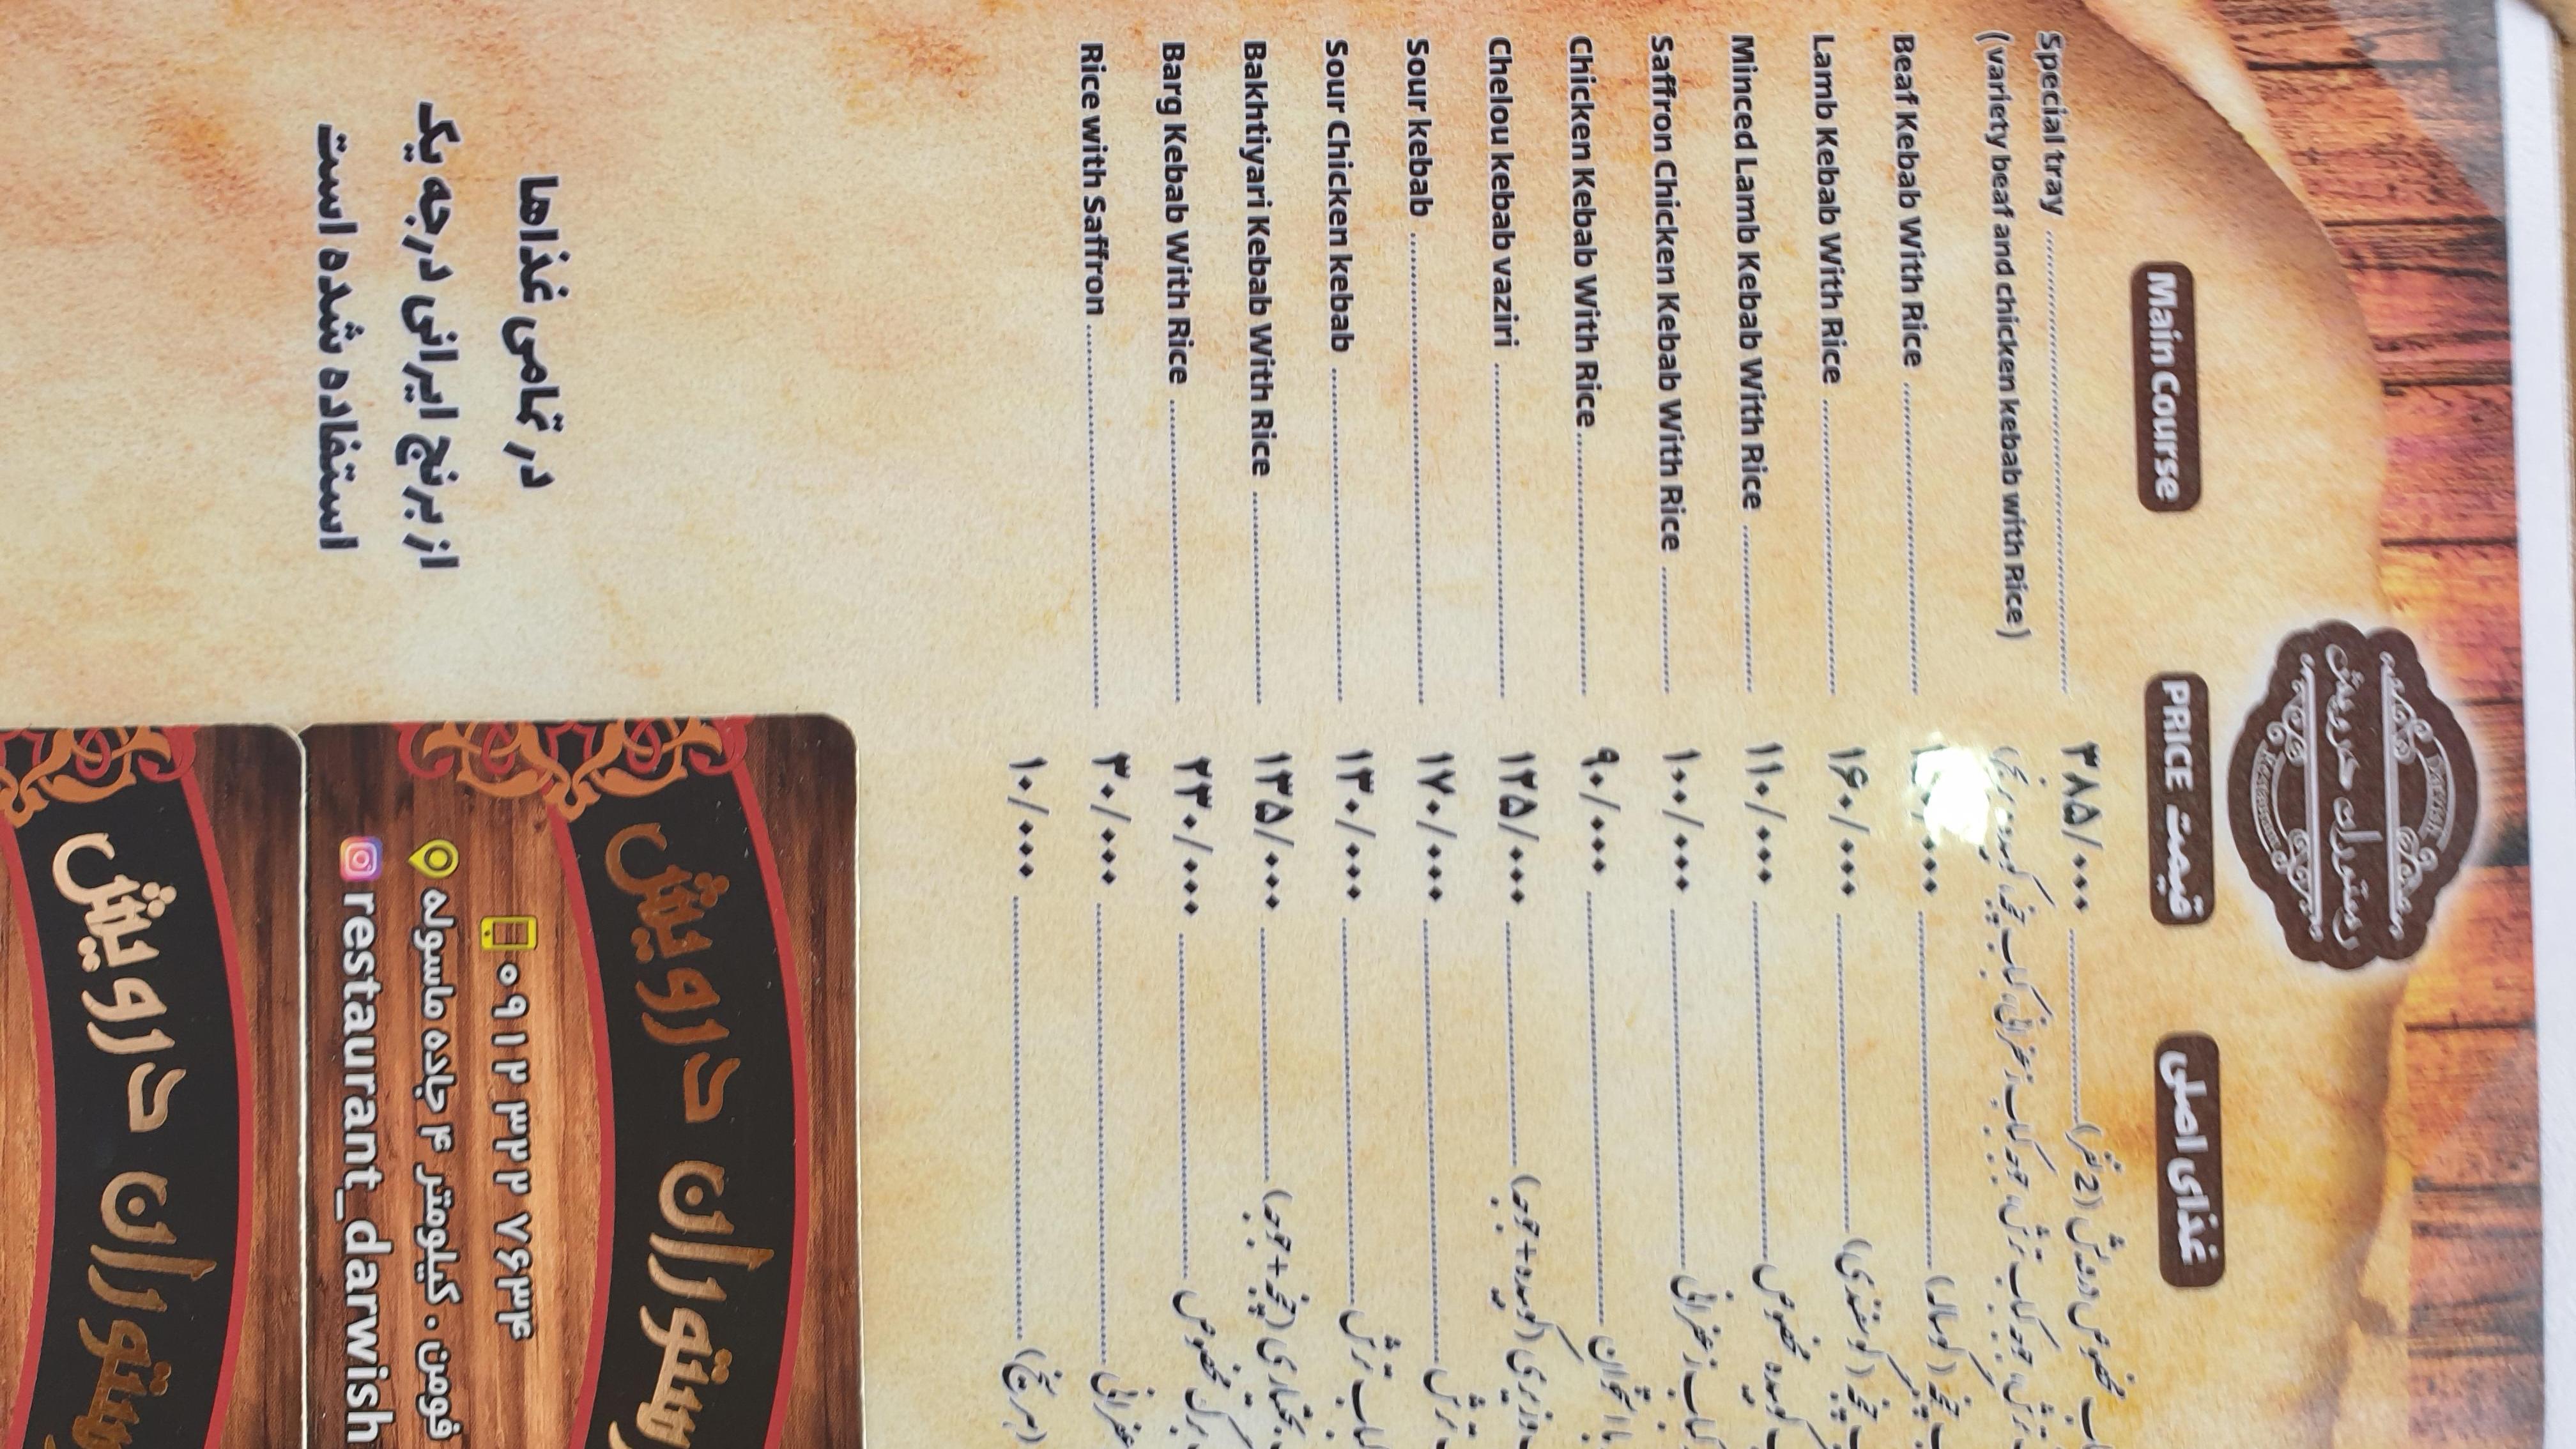 رستوران درویش
Darvish
Restaurant
Main Course
PRICE قیمت
غذای اصلی
Special tray ........ ۳۸۵/۰۰۰ ........ مخصوص درویش (2 نفر)
(variety beaf and chicken kebab with Rice)
Beaf Kebab With Rice ........
Lamb Kebab With Rice ........ ۱۶۰/۰۰۰ ........ (گوسفندی)
Minced Lamb Kebab With Rice ........ ۱۱۰/۰۰۰ ........ کوبیده مخصوص
Saffron Chicken Kebab With Rice ........ ۱۰۰/۰۰۰ ........ کباب زعفرانی
Chicken Kebab With Rice ........ ۹۰/۰۰۰ ........ با استخوان
Chelou kebab vaziri ........ ۱۲۵/۰۰۰ ........ وزیری (کوبیده+جوجه)
Sour kebab ........ ۱۷۰/۰۰۰ ........ ترش
Sour Chicken kebab ........ ۱۳۰/۰۰۰ ........ کباب ترش
Bakhtiyari Kebab With Rice ........ ۱۳۵/۰۰۰ ........ بختیاری (چنجه+جوجه)
Barg Kebab With Rice ........ ۲۳۰/۰۰۰ ........ برگ مخصوص
Rice with Saffron ........ ۳۰/۰۰۰ ........
۱۰/۰۰۰ ........
در تمامی غذاها
از برنج ایرانی درجه یک
استفاده شده است
رستوران درویش
۰۹۱۲ ۳۲۲ ۷۶۳۴
فومن ، کیلومتر ۴ جاده ماسوله
restaurant_darwish
رستوران درویش